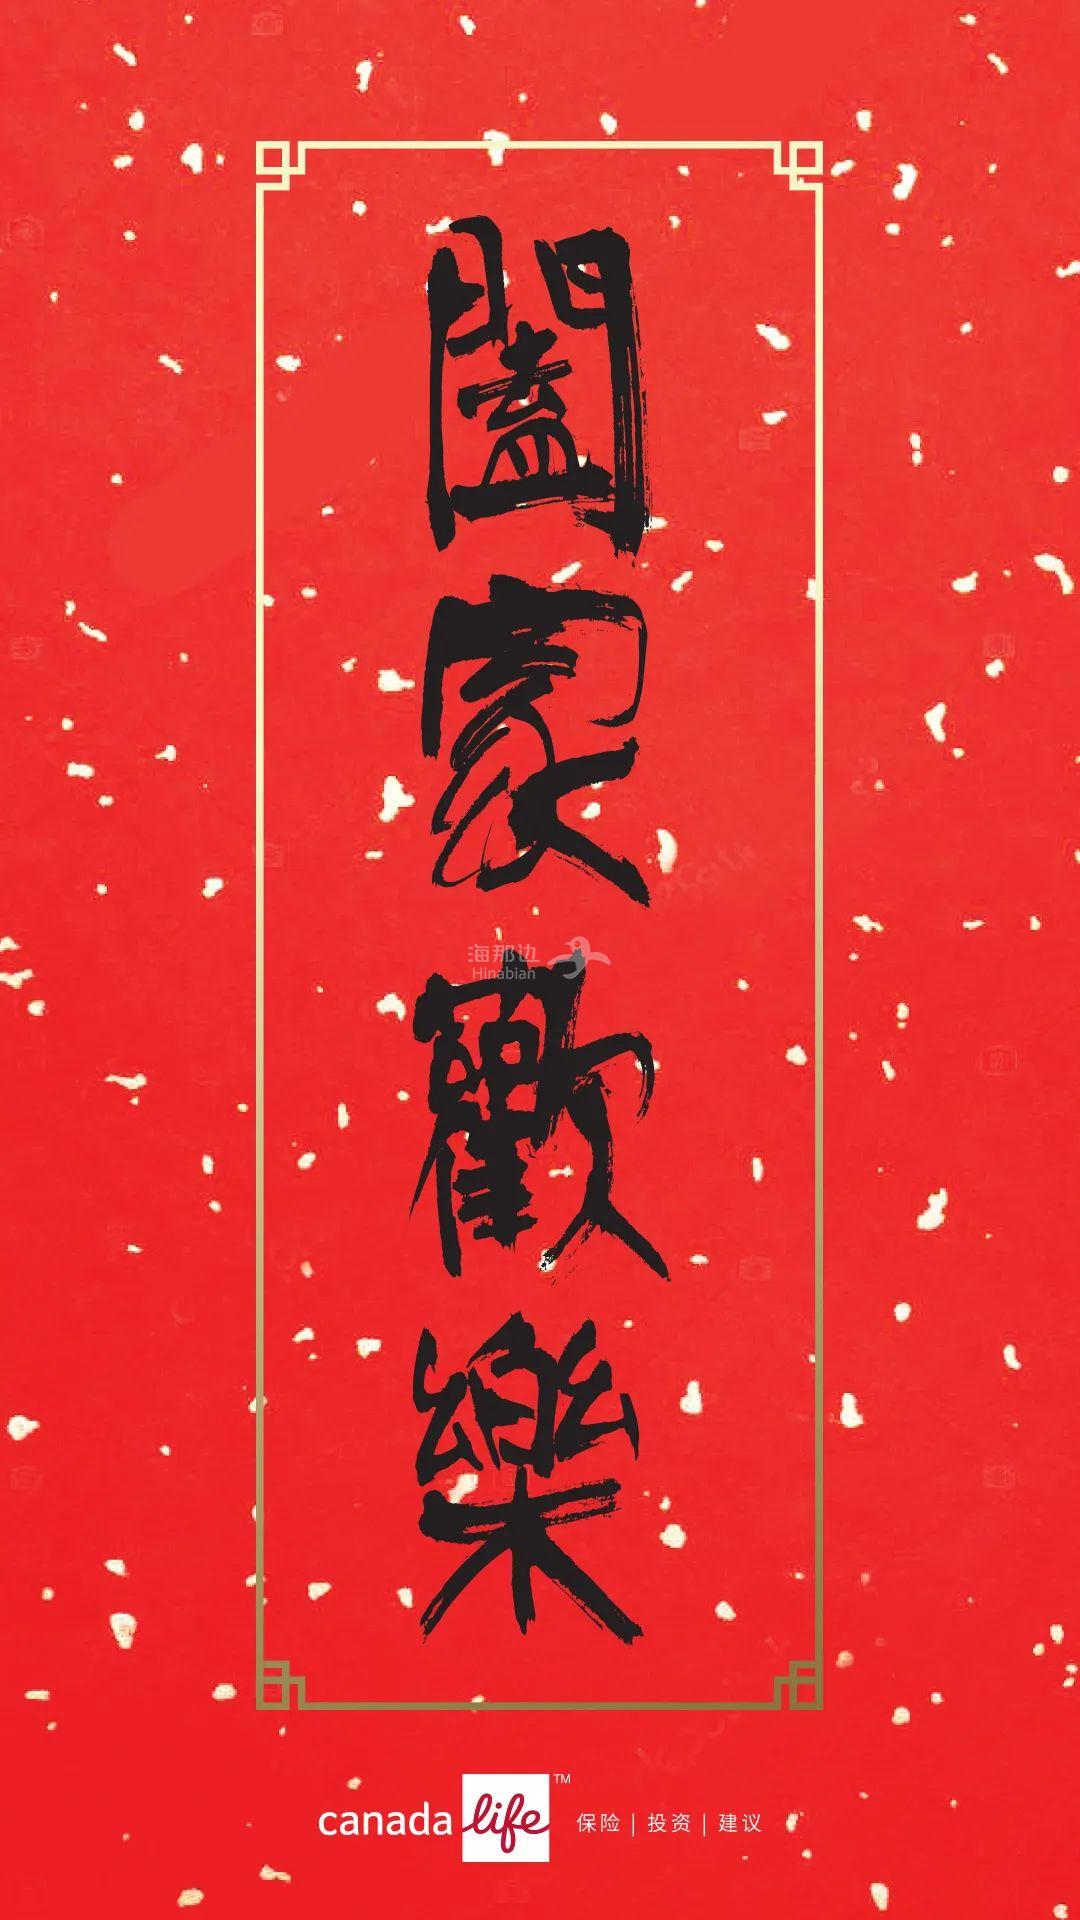 闔家歡樂
海那边
Hinabian
canada life™ 保险 | 投资 | 建议